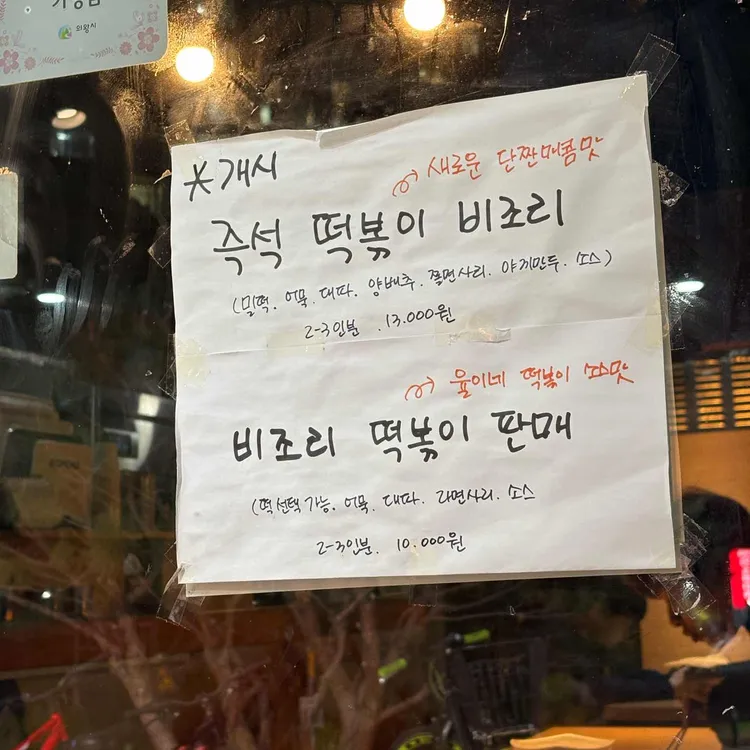 가정집
의왕시
*개시
새로운 단짠매콤맛
즉석 떡볶이 비조리
(밀떡. 어묵. 대파. 양배추. 쫄면사리. 야끼만두. 소스)
2-3인분 .13.000원
율이네 떡볶이 소스맛
비조리 떡볶이 판매
(떡선택가능. 어묵. 대파. 라면사리. 소스
2-3인분. 10.000원